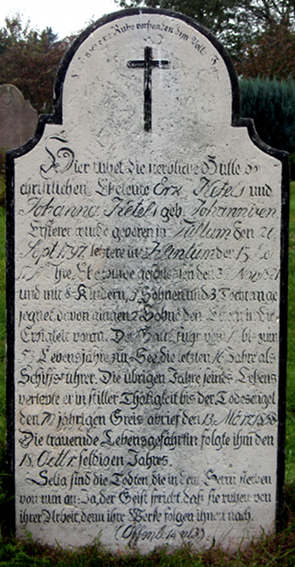 Ruhe
Hier ruhet die sterbliche Hülle der
christlichen Eheleute Ketels und
Johanna Ketels geb.
Ersterer wurde geboren in den
Sept. letztere in den 15.
ihre Ehe wurde geschlossen den
und mit 8 Kindern, 5 Söhnen und 3 Töchtern ge
segnet, davon gingen 2 Söhne den Eltern in die
Ewigkeit voran. Der Gatte fuhr vom bis zum
Lebensjahre zur See die letzten 16 Jahre als
Schiffsführer. Die übrigen Jahre seines Lebens
verlebte er in stiller Thätigkeit bis der Todesengel
den jährigen Greis abrief den 13. März
Die trauernde Lebensgefährtin folgte ihm den
18. Octbr. selbigen Jahres.
Selig sind die Todten die in dem Herrn sterben
von nun an. Ja, der Geist spricht, daß sie ruhen von
ihrer Arbeit, denn ihre Werke folgen ihnen nach.
(Offenb. 14 v. 13)